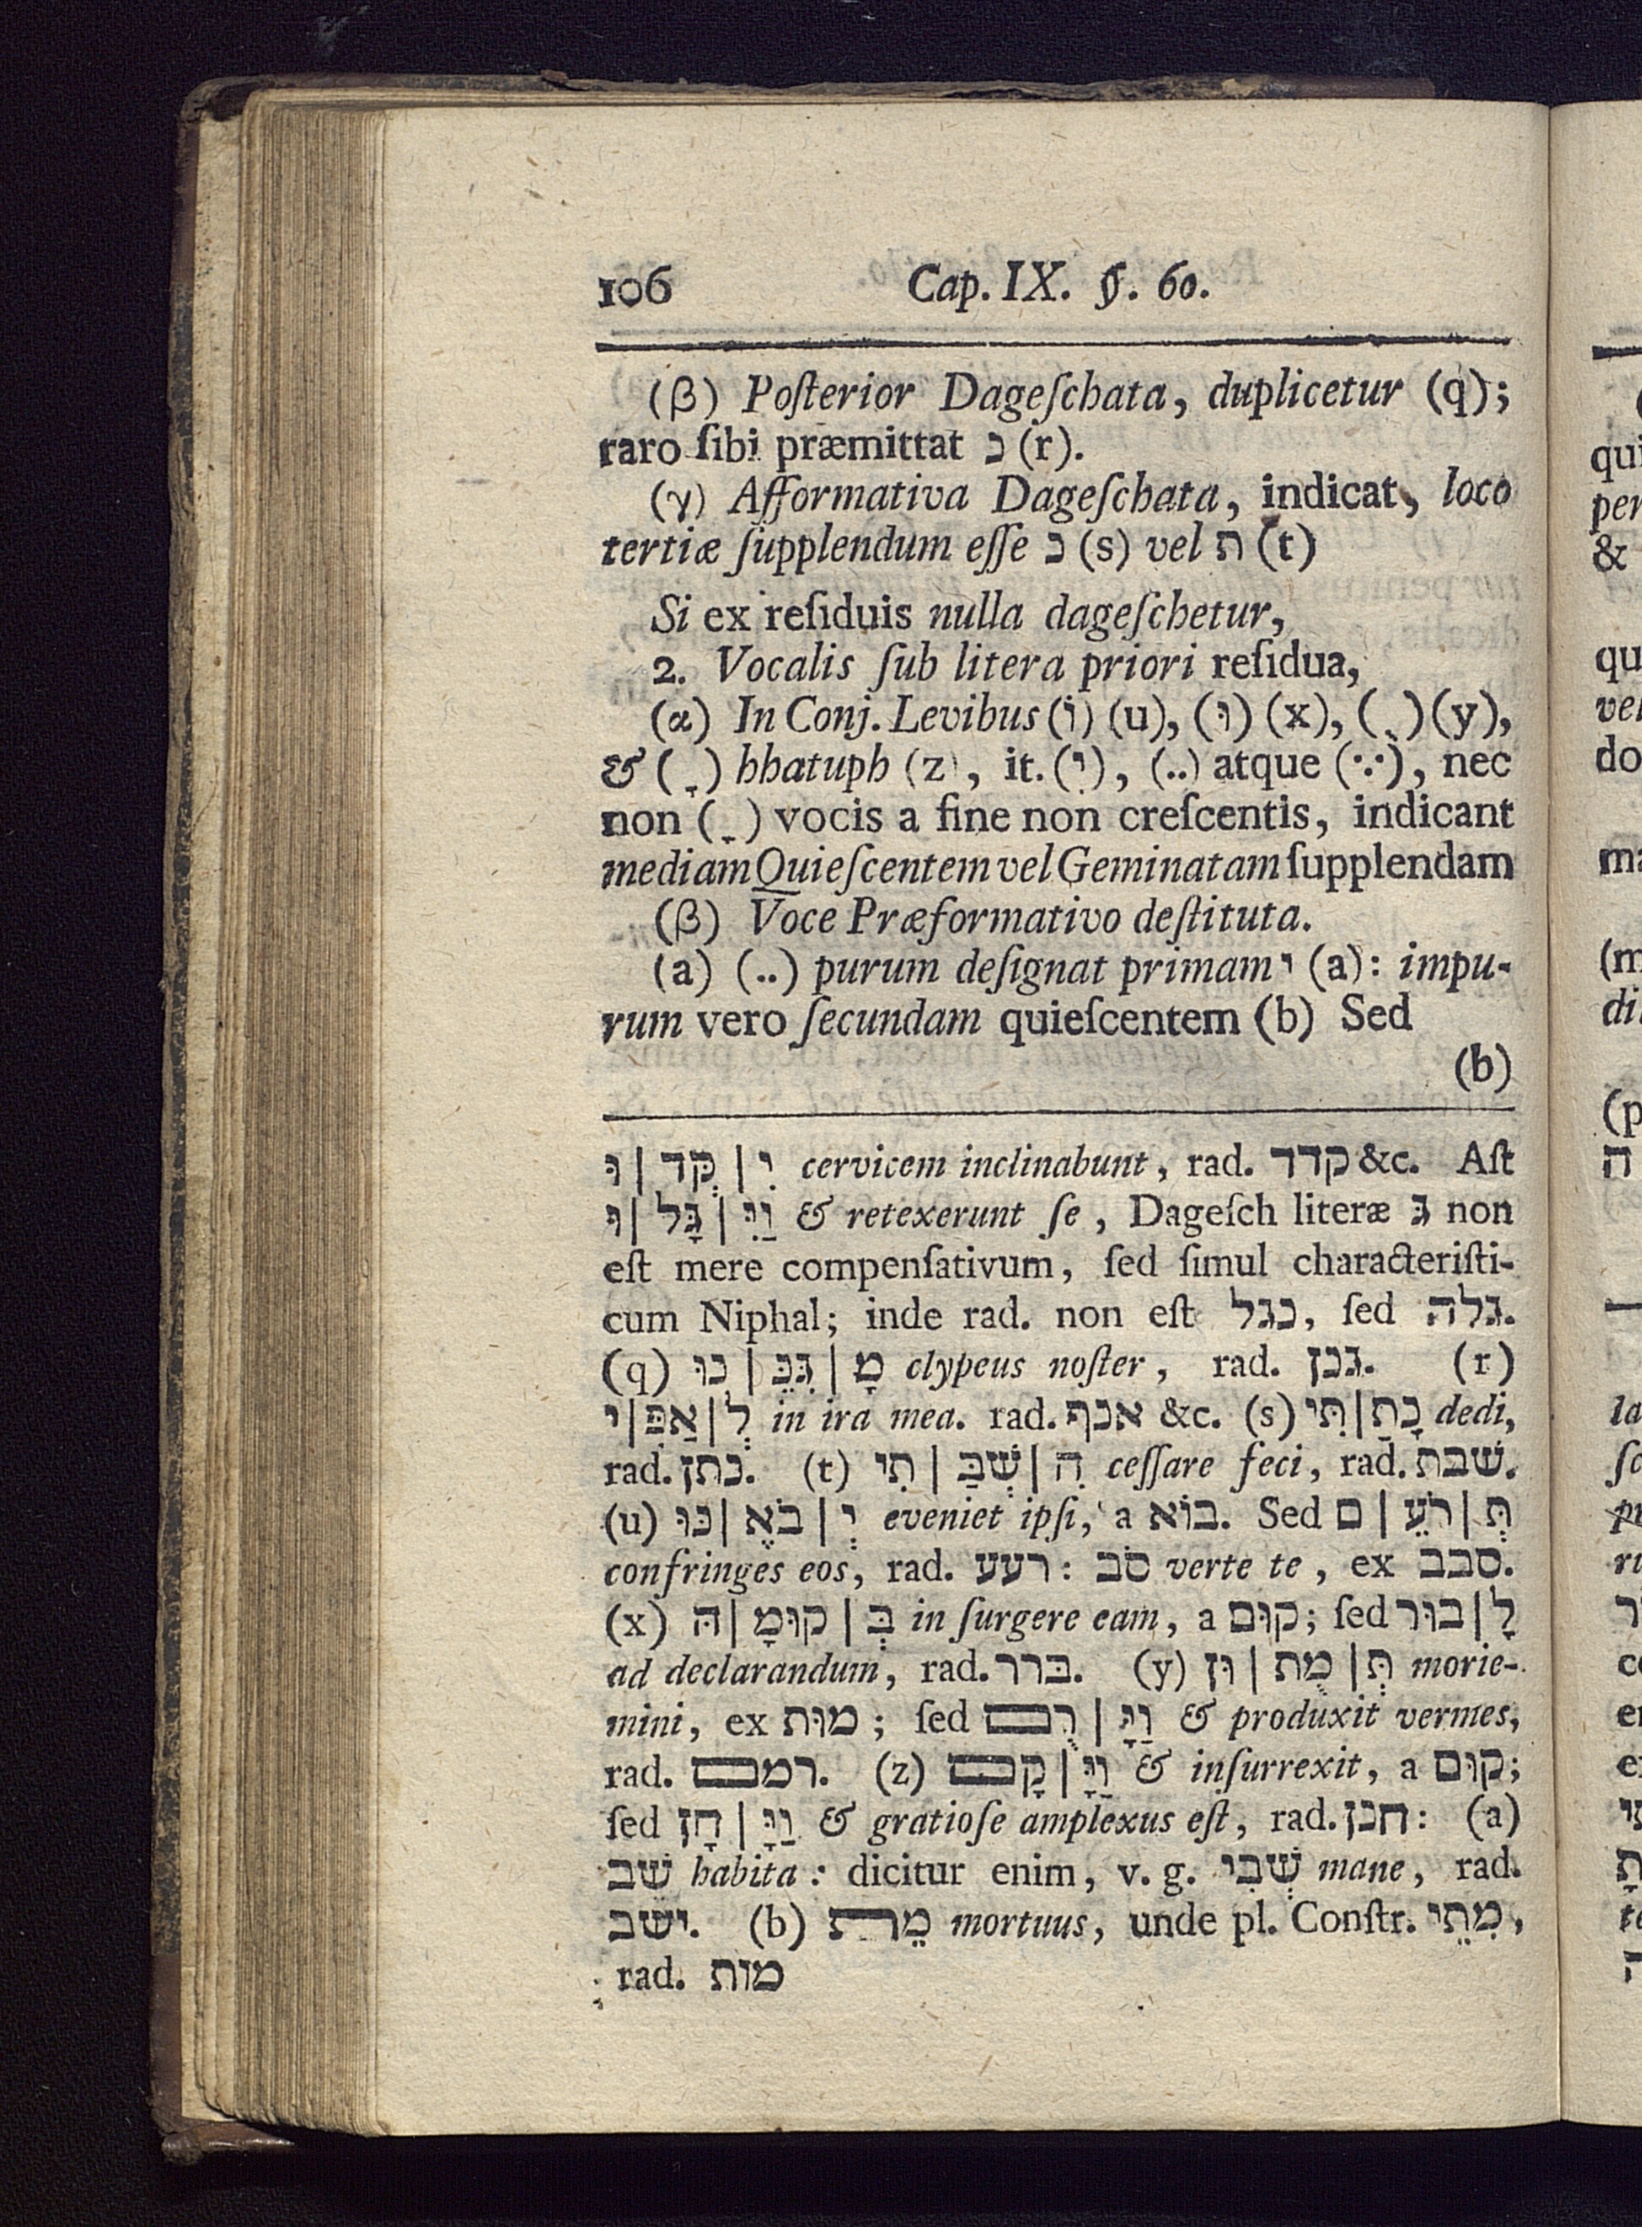 106 Cap. IX. §. 60.
(β) Poſterior Dageſchata, duplicetur (q);
raro ſibi præmittat נ (r).
(γ) Afformativa Dageſchata, indicat, loco
tertiæ ſupplendum eſſe נ (s) vel ת (t)
Si ex reſiduis nulla dageſchetur,
2. Vocalis ſub litera priori reſidua,
(α) In Conj. Levibus (וֹ) (u), (וּ) (x), ( ֻ ) (y),
& ( ָ ) hhatuph (z), it. (יִ), (..) atque (∵), nec
non ( ַ ) vocis a fine non creſcentis, indicant
mediam Quieſcentem vel Geminatam ſupplendam
(β) Voce Præformativo deſtituta.
(a) (..) purum deſignat primam י (a): impu-
rum vero ſecundam quieſcentem (b) Sed
(b)
יִ | קְּד | וּ cervicem inclinabunt, rad. קדד &c. Aſt
וַיִּ | גָּל | וּ & retexerunt ſe, Dageſch literæ גּ non
eſt mere compenſativum, ſed ſimul characteriſti-
cum Niphal; inde rad. non eſt נגל, ſed גלה.
(q) מָ | גִּנֵּ | נוּ clypeus noſter, rad. גנן. (r)
לְ | אַפִּ | י in ira mea. rad. אנף &c. (s) נָתַ | תִּי dedi,
rad. נתן. (t) הִ | שְׁבַּ | תִּי ceſſare feci, rad. שׁבת.
(u) יְ | בֹאֶ | נּוּ eveniet ipſi, a בוֹא. Sed תְּ | רֹעֵ | ם
confringes eos, rad. רעע: סֹב verte te, ex סבב.
(x) בְּ | קוּמָ | הּ in ſurgere eam, a קוּם; ſed לָ | בוּר
ad declarandum, rad. בּרר. (y) תְּ | מֻת | וּן morie-
mini, ex מוּת; ſed וַיָּ | רֻם & produxit vermes,
rad. רמם. (z) וַיָּ | קָם & inſurrexit, a קוּם;
ſed וַיָּ | חָן & gratioſe amplexus eſt, rad. חנן: (a)
שֵׁב habita: dicitur enim, v. g. שְׁבִי mane, rad.
ישׁב. (b) מֵת mortuus, unde pl. Conſtr. מְתֵי,
rad. מות